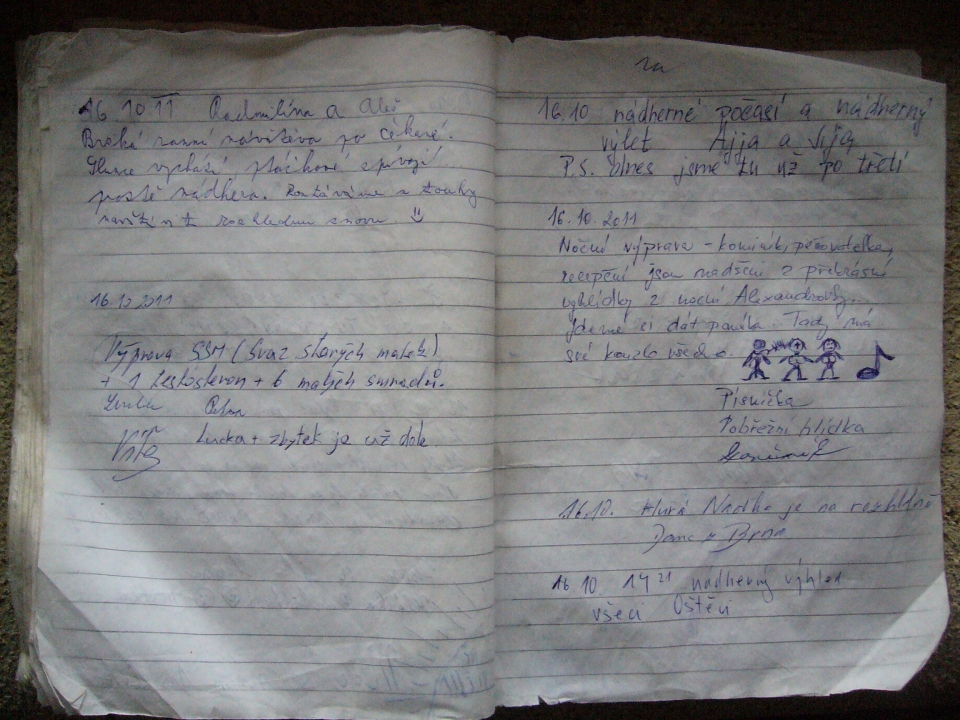 16 10 11 Radmilína a Aleš
Brzká ranní návštěva po
Slunce vychází ptáčkové zpívají
prostě nádhera. a
rozhlednu znovu
16.10 2011
Výprava SSM (Svaz starých matek)
+ 1 testosteron + 6 malých smradů.
Petra
Lucka + zbytek je už dole
16.10 nádherné počasí a nádherný
výlet Ajja a Sija
P.S. dnes jsme tu už po třetí
16.10.2011
Noční výprava - kominík, pečovatelka,
recepční jsou nadšeni z překrásné
vyhlídky z noční Alexandrovky.
Jdeme si dát panáka. Tady má
své kouzlo všechno.
Písnička
Pobřežní hlídka
16.10. Hurá Naďka je na rozhledně
Jana z Brna
16 10. 14 21 nádherný výhled
všeci Oštěci